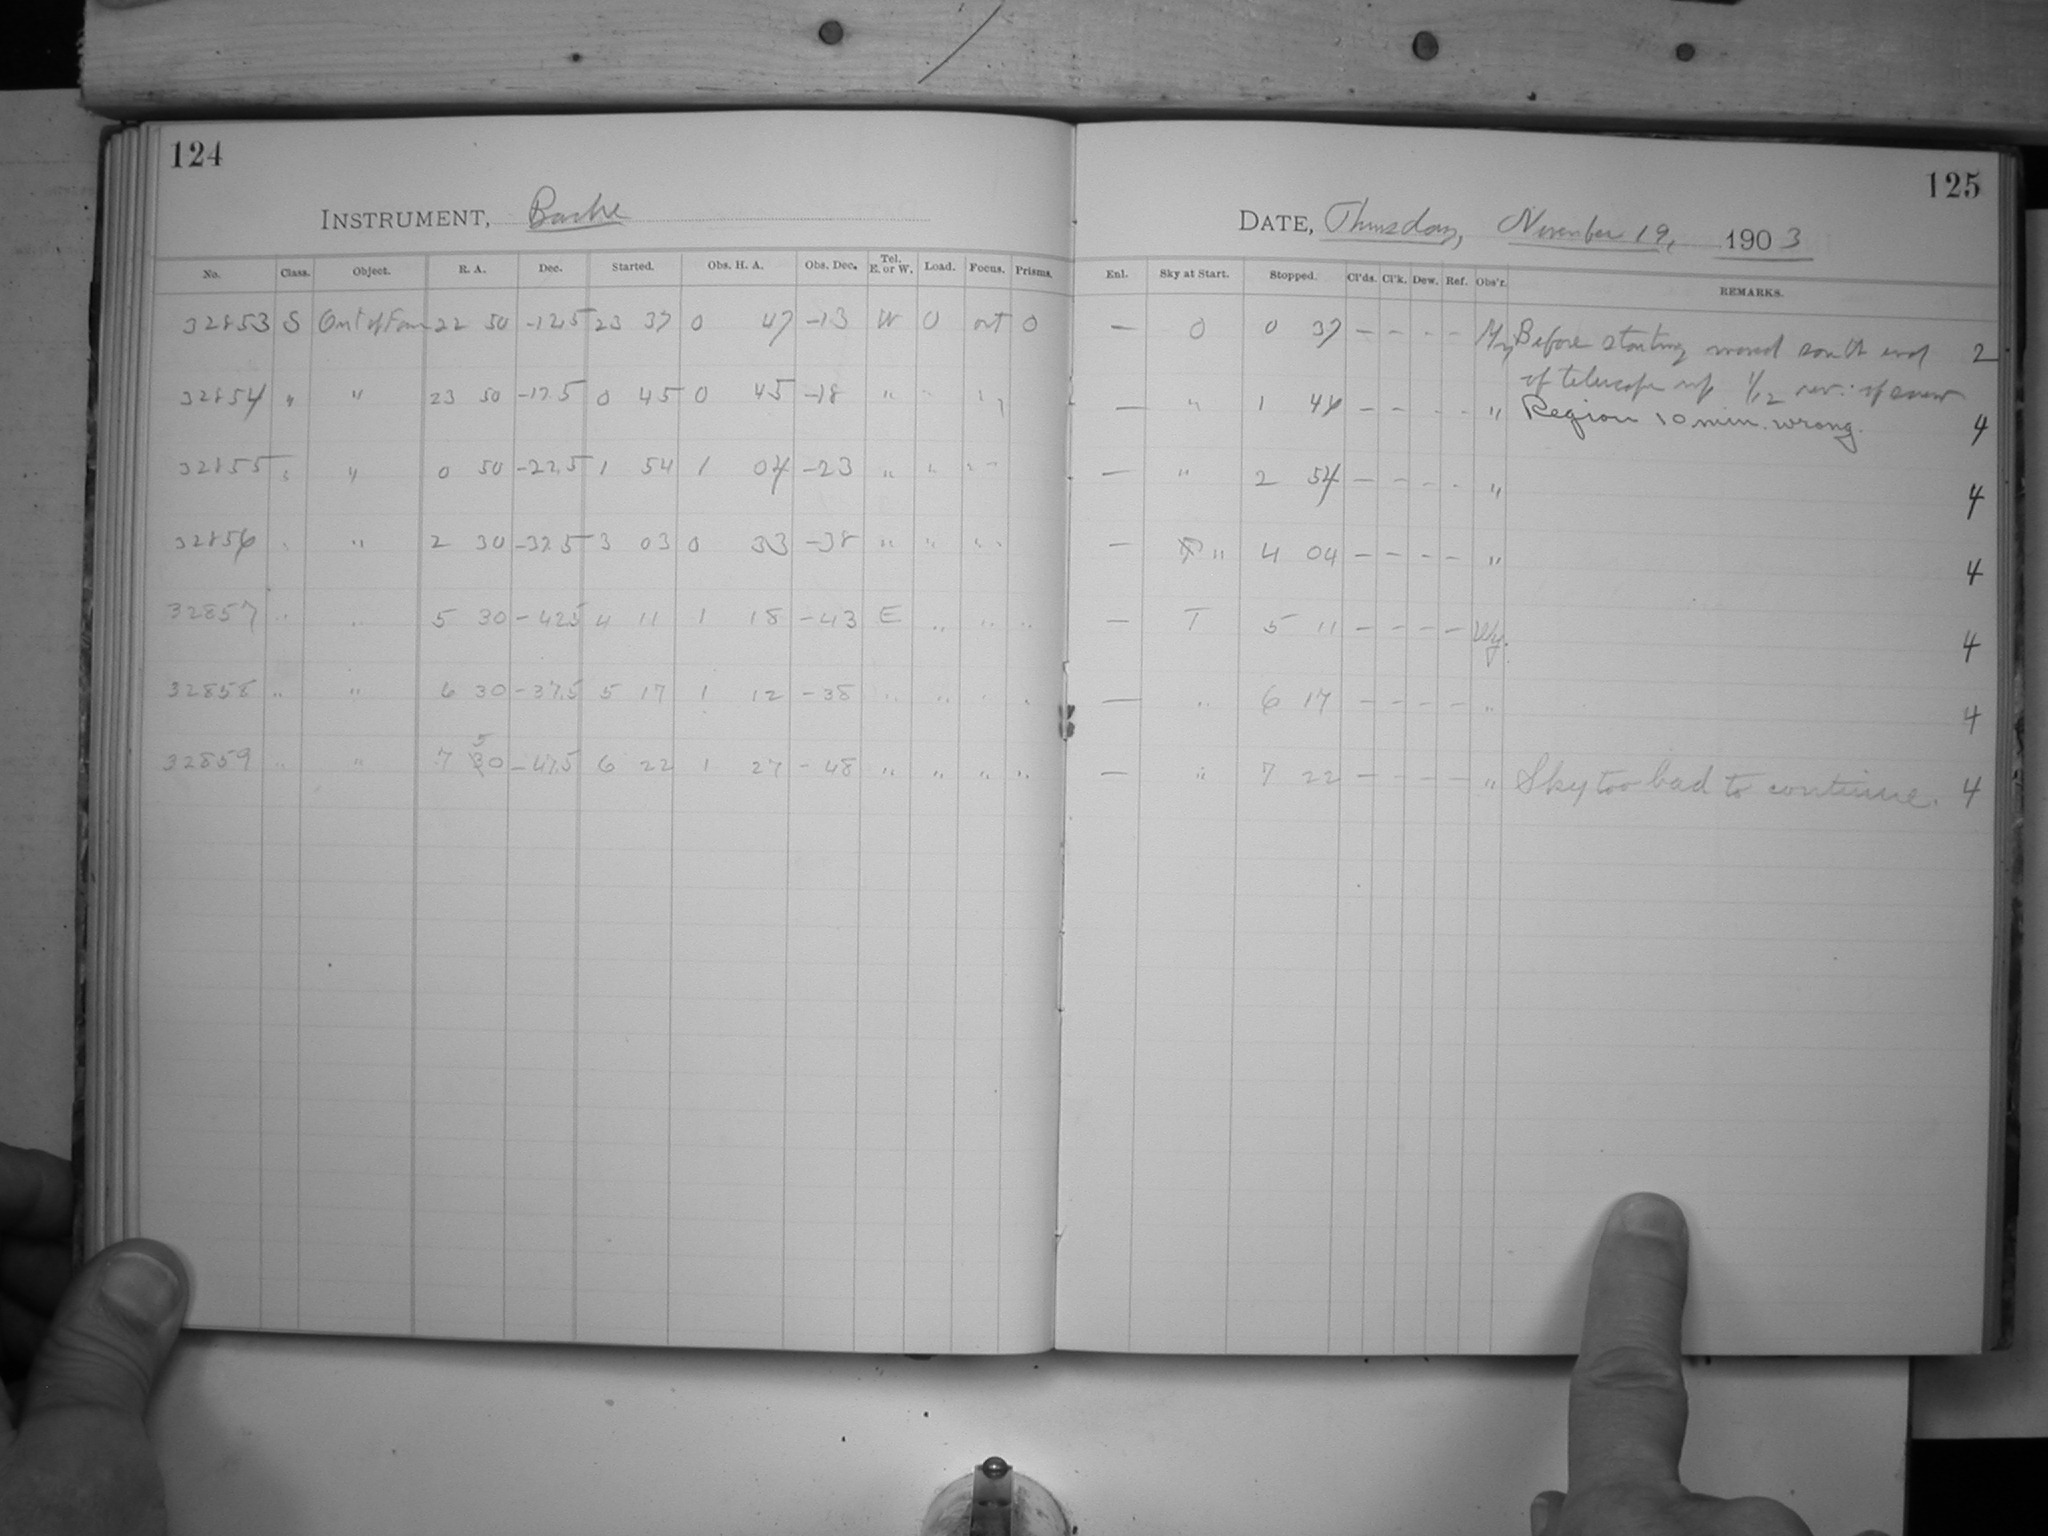 124
125
INSTRUMENT, Bache
DATE, Thursday, November 19, 1903
No. Class. Object. R. A. Dec. Started. Obs. H. A. Obs. Dec. Tel. E. or W. Load. Focus. Prisms. Enl. Sky at Start. Stopped. Cl'ds. Cl'k. Dew. Ref. Obs'r. REMARKS.
32853 S Out of Foc 22 50 -12.5 23 37 0 47 -13 W 0 out 0 — 0 0 37 – – – – My Before starting moved south end 2
of telescope up 1/12 rev. of screw
32854 " " 23 50 -17.5 0 45 0 45 -18 " " " — " 1 48 – – – – " Region 10 min. wrong. 4
32855 " " 0 50 -22.5 1 54 1 04 -23 " " " — " 2 54 – – – – " 4
32856 " " 2 30 -37.5 3 03 0 33 -38 " " " — " 4 04 – – – – " 4
32857 " " 5 30 -42.5 4 11 1 18 -43 E " " " — T 5 11 – – – – 4
32858 " " 6 30 -37.5 5 17 1 12 -38 " " " " — " 6 17 – – – – " 4
32859 " " 7 50 -47.5 6 22 1 27 -48 " " " " — " 7 22 – – – – " Sky too bad to continue. 4